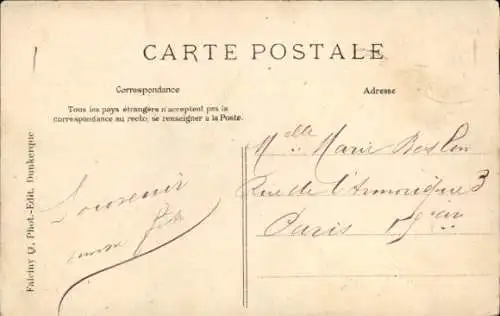 CARTE POSTALE
Correspondance
Adresse
Tous les pays étrangers n'acceptent pas la
correspondance au recto, se renseigner à la Poste.
Souvenir
Melle Marie
Rue de l'Armorique 3
Paris
Phot.-Edit. Dunkerque